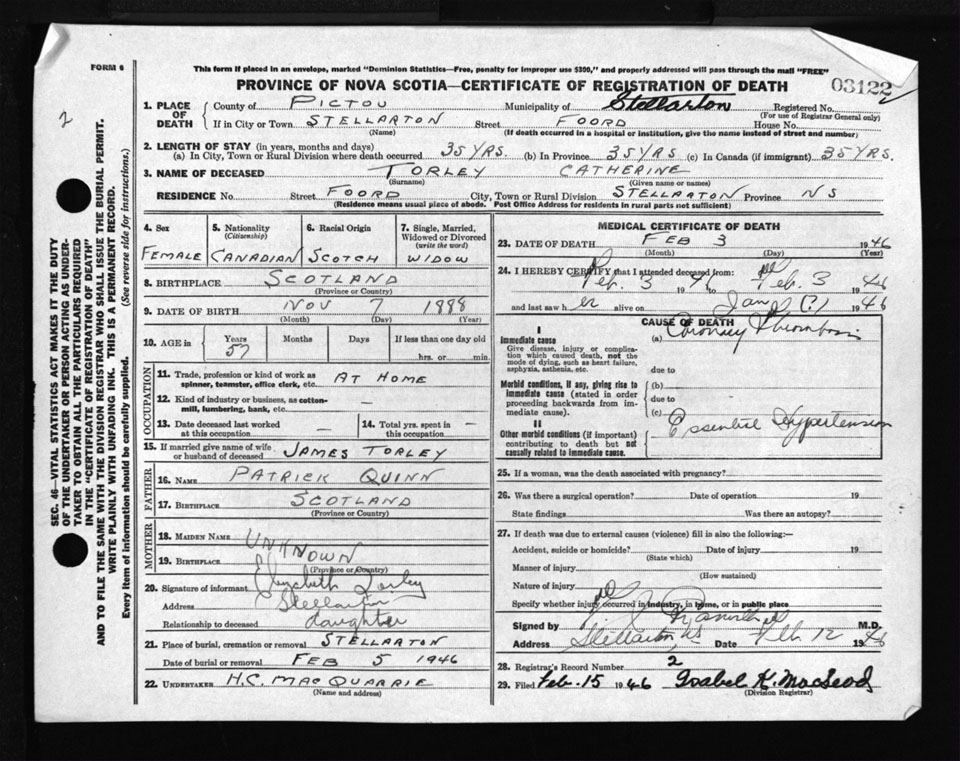 FORM 6
This form if placed in an envelope, marked "Dominion Statistics—Free, penalty for improper use $300," and properly addressed will pass through the mail "FREE"
PROVINCE OF NOVA SCOTIA—CERTIFICATE OF REGISTRATION OF DEATH
03122
2
1. PLACE OF DEATH
County of PICTOU Municipality of Stellarton Registered No.
(For use of Registrar General only)
If in City or Town STELLARTON Street FOORD House No.
(Name) (If death occurred in a hospital or institution, give the name instead of street and number)
2. LENGTH OF STAY (in years, months and days)
(a) In City, Town or Rural Division where death occurred 35 YRS. (b) In Province 35 YRS (c) In Canada (if immigrant) 35 YRS.
3. NAME OF DECEASED TORLEY CATHERINE
(Surname) (Given name or names)
RESIDENCE No. Street FOORD City, Town or Rural Division STELLARTON Province NS
(Residence means usual place of abode. Post Office Address for residents in rural parts not sufficient)
SEC. 46—VITAL STATISTICS ACT MAKES IT THE DUTY
OF THE UNDERTAKER OR PERSON ACTING AS UNDER-
TAKER TO OBTAIN ALL THE PARTICULARS REQUIRED
IN THE "CERTIFICATE OF REGISTRATION OF DEATH"
AND TO FILE THE SAME WITH THE DIVISION REGISTRAR WHO SHALL ISSUE THE BURIAL PERMIT.
WRITE PLAINLY WITH UNFADING INK. THIS IS A PERMANENT RECORD.
Every item of information should be carefully supplied. (See reverse side for instructions.)
4. Sex
FEMALE
5. Nationality
(Citizenship)
CANADIAN
6. Racial Origin
SCOTCH
7. Single, Married,
Widowed or Divorced
(write the word)
WIDOW
8. BIRTHPLACE SCOTLAND
(Province or Country)
9. DATE OF BIRTH NOV 7 1888
(Month) (Day) (Year)
10. AGE in Years Months Days If less than one day old
57 hrs. or min.
OCCUPATION
11. Trade, profession or kind of work as
spinner, teamster, office clerk, etc. AT HOME
12. Kind of industry or business, as cotton-
mill, lumbering, bank, etc. —
13. Date deceased last worked
at this occupation —
14. Total yrs. spent in
this occupation —
15. If married give name of wife
or husband of deceased JAMES TORLEY
FATHER
16. NAME PATRICK QUINN
17. BIRTHPLACE SCOTLAND
(Province or Country)
MOTHER
18. MAIDEN NAME UNKNOWN
19. BIRTHPLACE
(Province or Country)
20. Signature of informant Elizabeth Torley
Address Stellarton
Relationship to deceased daughter
21. Place of burial, cremation or removal STELLARTON
Date of burial or removal FEB 5 1946
22. UNDERTAKER H.C. MACQUARRIE
(Name and address)
MEDICAL CERTIFICATE OF DEATH
23. DATE OF DEATH FEB 3 1946
(Month) (Day) (Year)
24. I HEREBY CERTIFY that I attended deceased from:
Feb. 3 1946 Feb. 3 1946
and last saw her alive on Jan (?) 1946
CAUSE OF DEATH
I
Immediate cause
Give disease, injury or complica-
tion which caused death, not the
mode of dying, such as heart failure,
asphyxia, asthenia, etc.
(a) Coronary Thrombosis
due to
Morbid conditions, if any, giving rise to
immediate cause (stated in order
proceeding backwards from im-
mediate cause).
(b)
due to
(c)
II
Other morbid conditions (if important)
contributing to death but not
causally related to immediate cause.
Essential Hypertension
25. If a woman, was the death associated with pregnancy?
26. Was there a surgical operation? Date of operation 19
State findings Was there an autopsy?
27. If death was due to external causes (violence) fill in also the following:—
Accident, suicide or homicide? Date of injury 19
(State which)
Manner of injury
(How sustained)
Nature of injury
Specify whether injury occurred in industry, in home, or in public place
Signed by M.D.
Address Stellarton, NS Date Feb. 12 1946
28. Registrar's Record Number 2
29. Filed Feb. 15 1946 Isabel K. MacLeod
(Division Registrar)